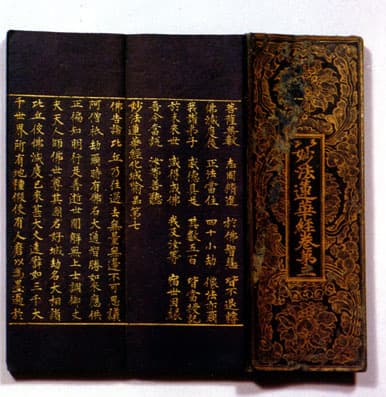 妙法蓮華經卷第三
菩薩無數 志固精進 於佛智慧 皆不退轉
佛滅度後 正法當住 四十小劫 像法亦爾
我諸弟子 威德具足 其數五百 皆當授記
於未來世 咸得成佛 我及汝等 宿世因緣
吾今當說 汝等善聽
妙法蓮華經化城喻品第七
佛告諸比丘乃往過去無量無邊不可思議
阿僧祇劫爾時有佛名大通智勝如來應供
正遍知明行足善逝世間解無上士調御丈
夫天人師佛世尊其國名好城劫名大相諸
比丘彼佛滅度已來甚大久遠譬如三千大
千世界所有地種假使有人磨以為墨過於